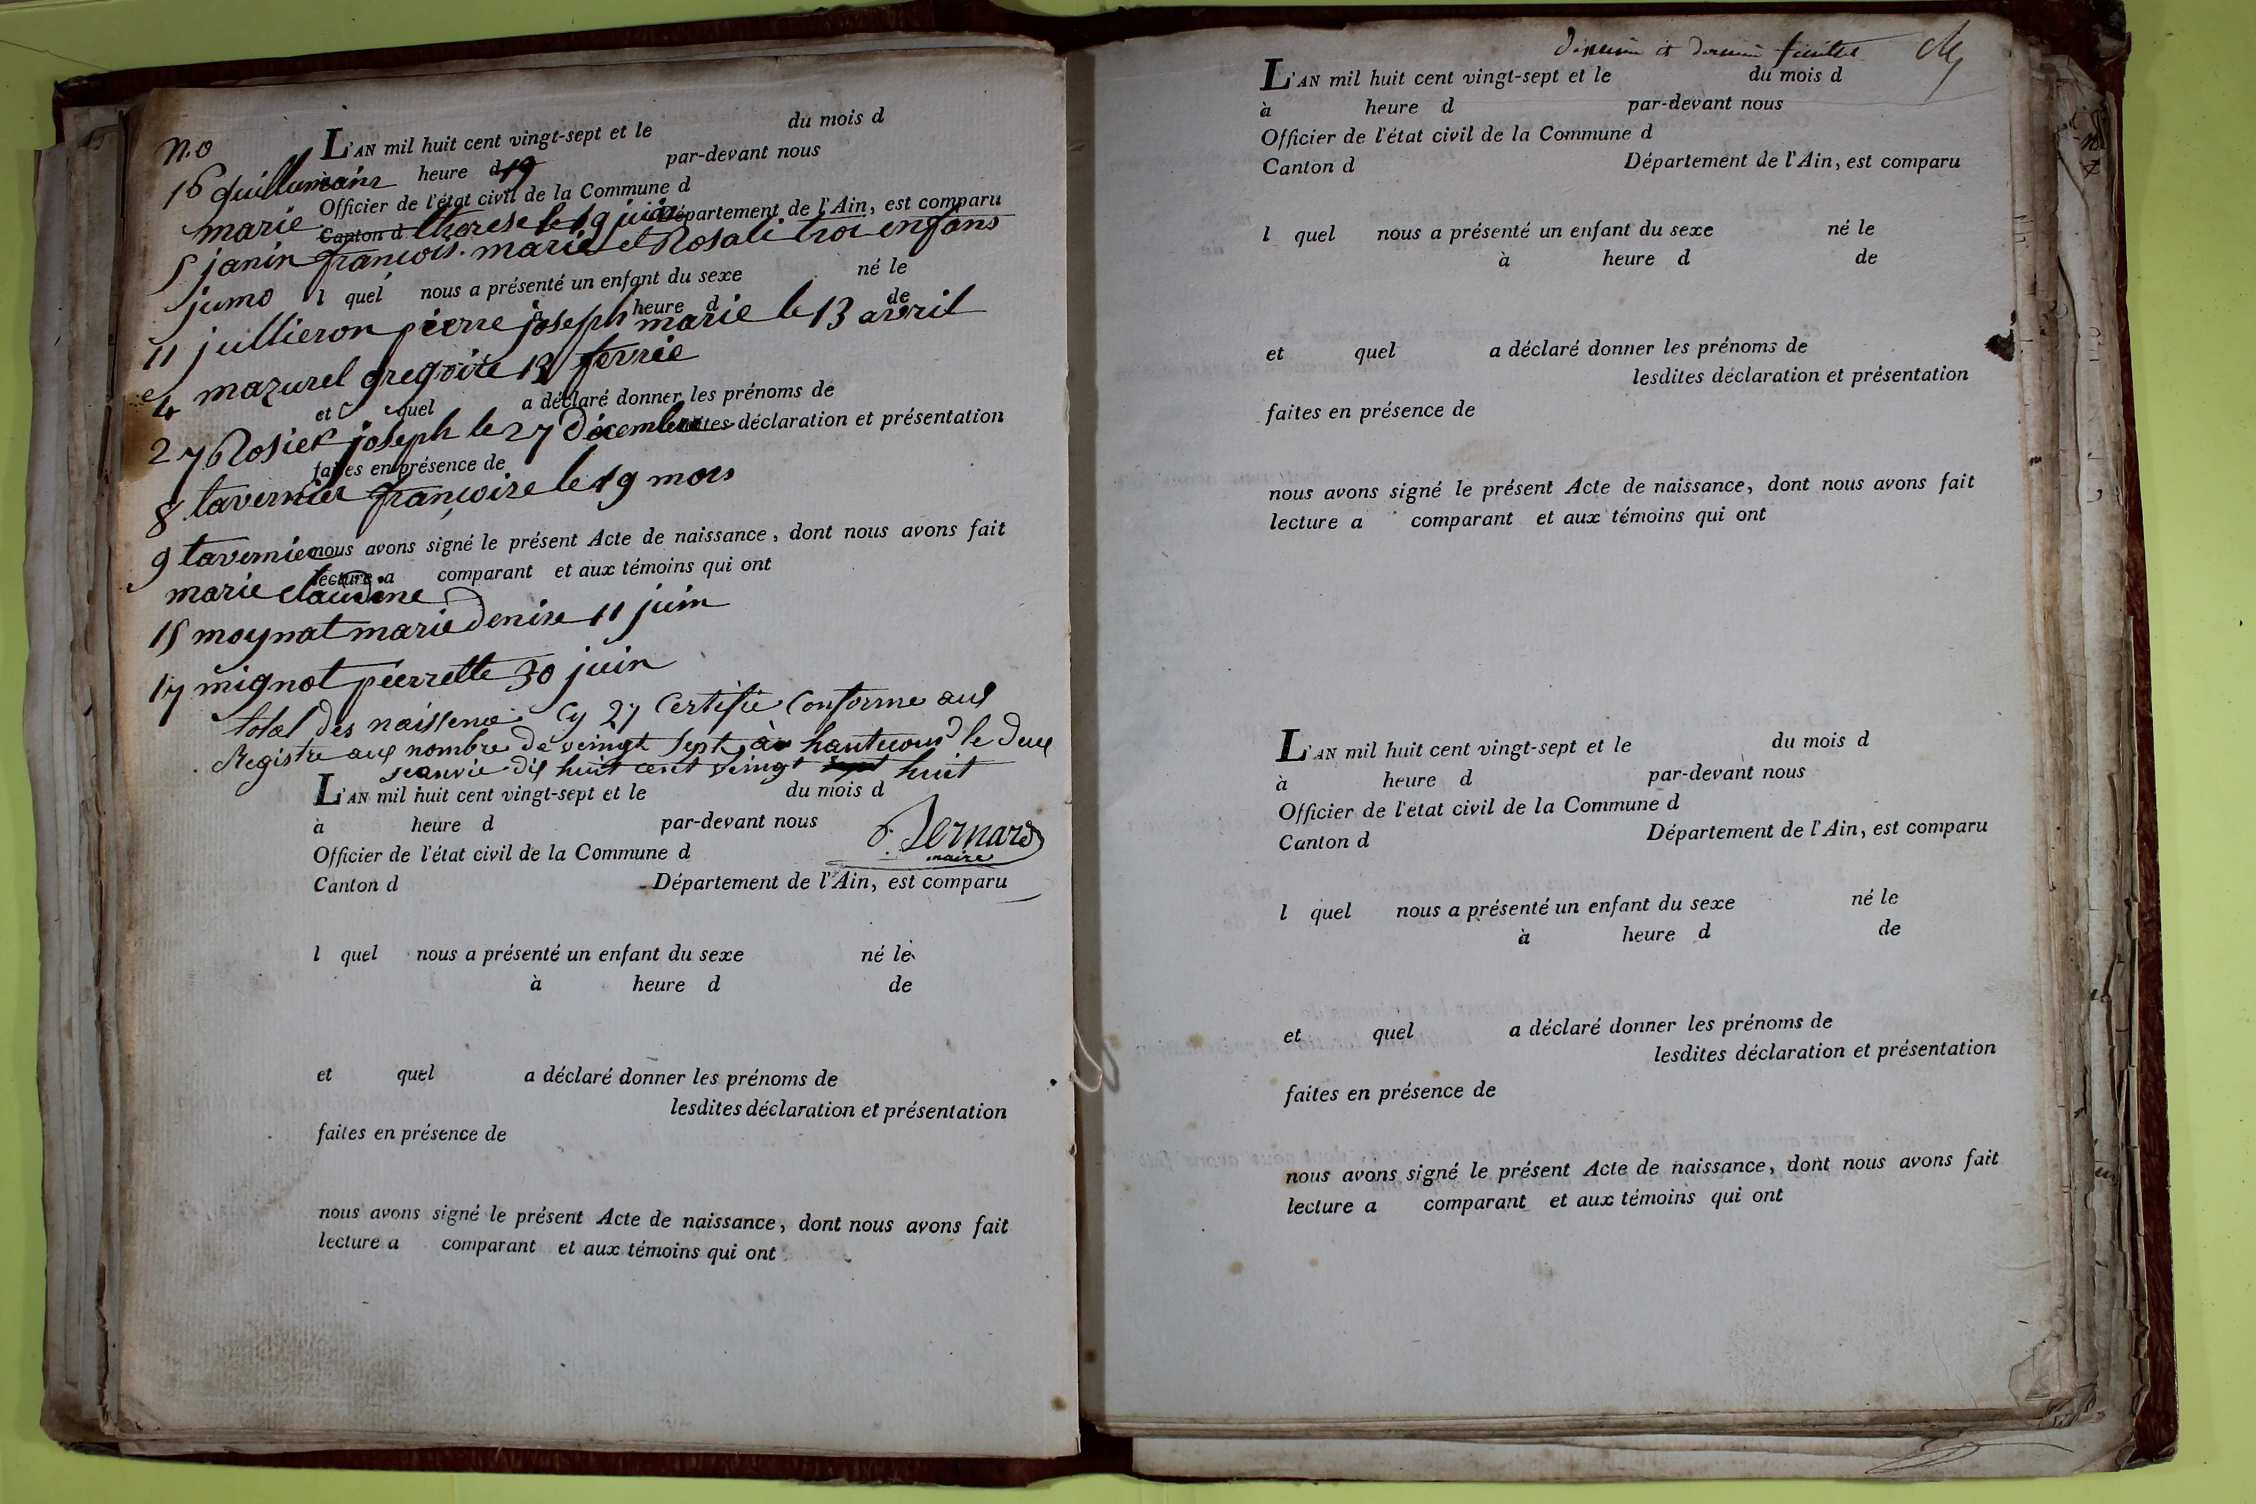 n.o
L'AN mil huit cent vingt-sept et le du mois d
16 guillumain heure d 19 par-devant nous
Officier de l'état civil de la Commune d
marie therese le 19 juin
Canton d Département de l'Ain, est comparu
5 janin françois. marie et Rosali troi enfans
jumo l quel nous a présenté un enfant du sexe né le
à heure d de
11 jullieron pierre joseph marie le 13 avril
4 mazurel gregoire 12 fevrié
et quel a déclaré donner les prénoms de
lesdites déclaration et présentation
27 Rosier joseph le 27 décembre
faites en présence de
8 tavernier françoise le 19 mors
nous avons signé le présent Acte de naissance, dont nous avons fait
9 tavernier
lecture a comparant et aux témoins qui ont
marie claudine
15 moynat marie denise 11 juin
17 mignot pierrette 30 juin
total des naissence Cy 27 Certifié Conforme aux
Registre aux nombre de veingt sept, à hautecour le deux
jeanvié dix huit cent veingt sept huit
L'AN mil huit cent vingt-sept et le du mois d
à heure d par-devant nous
Bernard
maire
Officier de l'état civil de la Commune d
Canton d Département de l'Ain, est comparu
l quel nous a présenté un enfant du sexe né le
à heure d de
et quel a déclaré donner les prénoms de
lesdites déclaration et présentation
faites en présence de
nous avons signé le présent Acte de naissance, dont nous avons fait
lecture a comparant et aux témoins qui ont
et
L'AN mil huit cent vingt-sept et le du mois d
à heure d par-devant nous
Officier de l'état civil de la Commune d
Canton d Département de l'Ain, est comparu
l quel nous a présenté un enfant du sexe né le
à heure d de
et quel a déclaré donner les prénoms de
lesdites déclaration et présentation
faites en présence de
nous avons signé le présent Acte de naissance, dont nous avons fait
lecture a comparant et aux témoins qui ont
L'AN mil huit cent vingt-sept et le du mois d
à heure d par-devant nous
Officier de l'état civil de la Commune d
Canton d Département de l'Ain, est comparu
l quel nous a présenté un enfant du sexe né le
à heure d de
et quel a déclaré donner les prénoms de
lesdites déclaration et présentation
faites en présence de
nous avons signé le présent Acte de naissance, dont nous avons fait
lecture a comparant et aux témoins qui ont